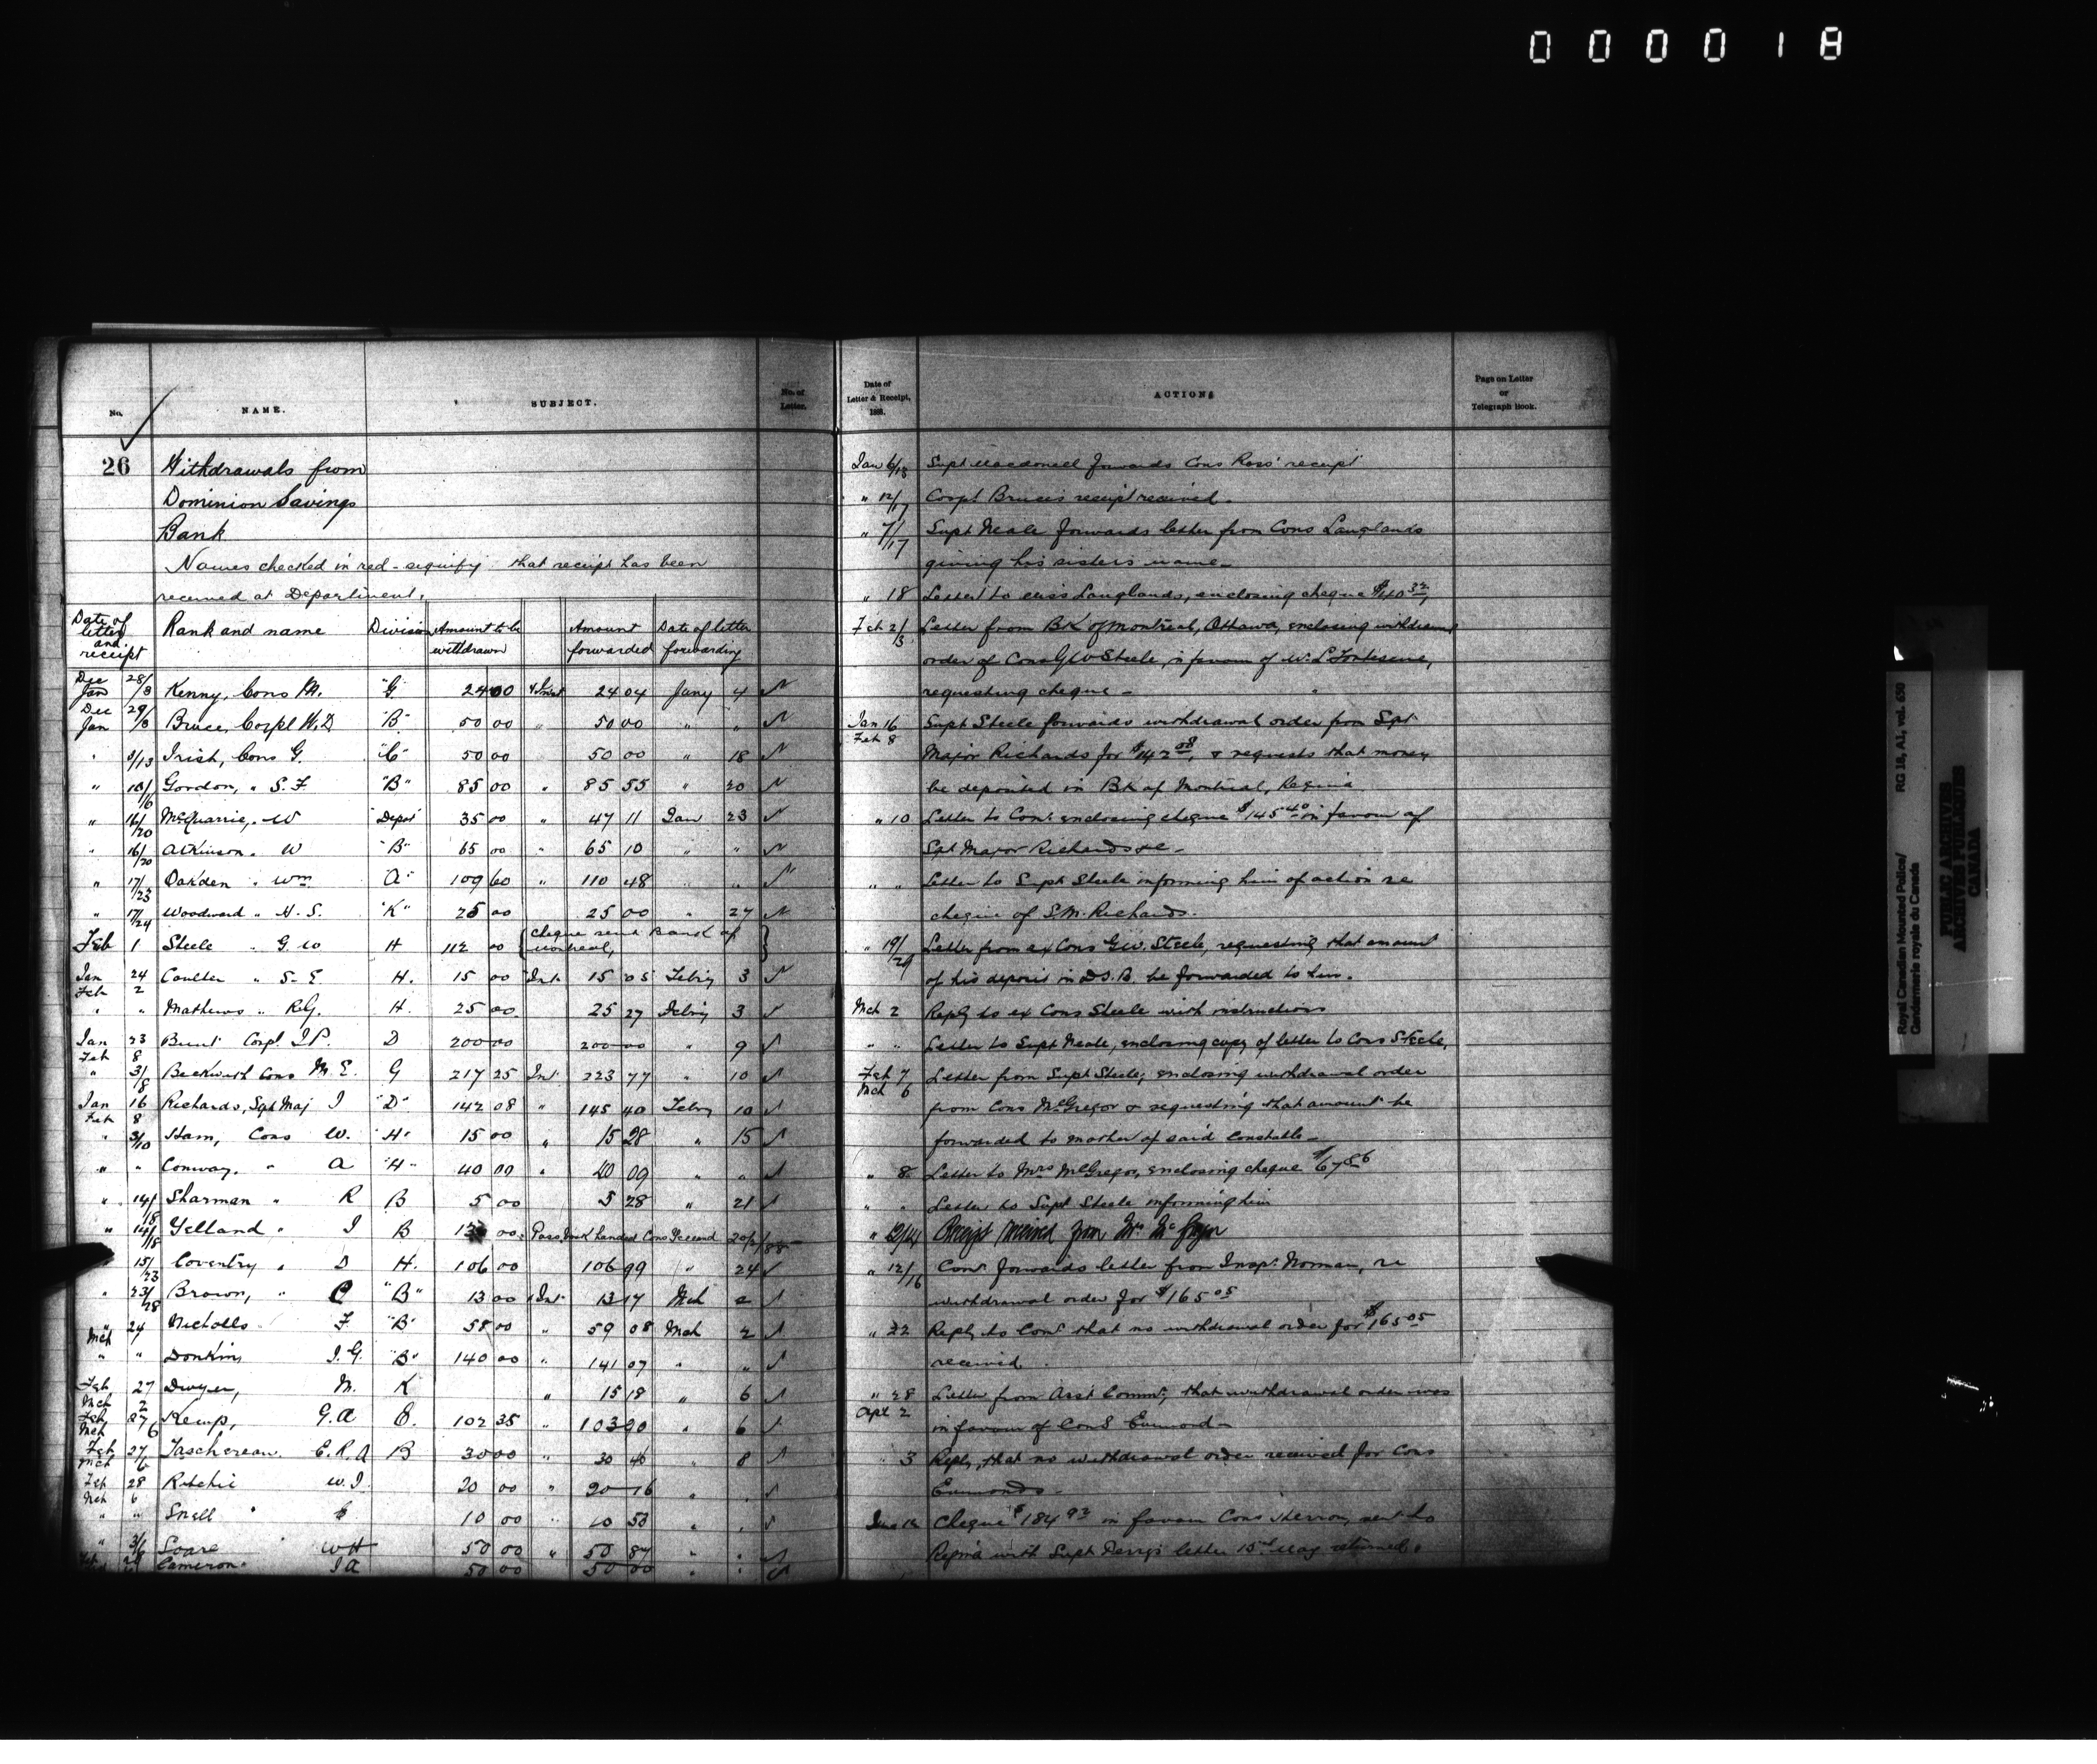 0 0 0 0 1 8
No.
NAME.
SUBJECT.
No. of Letter.
26
Withdrawals from
Dominion Savings
Bank
Names checked in red - signify that receipt has been
received at Department.
Date of letter and receipt Rank and name Division Amount to be withdrawn Amount forwarded Date of letter forwarding
Dec 28/ Jan /3 Kenny, Cons M. "G" 24 00 24 04 Jany 4
Dec 29/ Jan /3 Bruce, Corpl W.D "B" 50 00 " 50 00 " "
" Irish, Cons G. "C" 50 00 50 00 " 18
" Gordon, " S. F "B" 85 00 " 85 55 " 20
" 16/20 McQuarrie, " W "Depot" 35 00 " 47 11 Jan 23
" 16/20 Atkinson " W "B" 65 00 " 65 10 " "
" 17/23 Oakden " Wm "A" 109 60 " 110 48 " "
" 17/24 Woodward " H. S. "K" 25 00 25 00 " 27
Feb 1 Steele " G. W H 112 00 {cheque sent Bank of Montreal,}
Jan 24 Feb 2 Coulter " S. E. H. 15 00 Int. 15 05 Febry 3
" " Mathews " R.G. H. 25 00 25 27 Febry 3
Jan 23 Feb 8 Bunt Corpl J P. D 200 00 200 00 " 9
" 3/8 Beckwith Cons M. E. G 217 25 Int 223 77 " 10
Jan 16 Feb 8 Richards, Sgt Maj J "D" 142 08 " 145 40 Febry 10
" 3/10 Ham, Cons W. "H" 15 00 " 15 28 " 15
" " Conway, " A "H" 40 00 " 40 09 " "
" 14/18 Sharman " R B 5 00 5 28 " 21
" 14/18 Yelland " J B 00 Pass Book handed Cons Yelland 20/2/88
" 15/23 Coventry " D H. 106 00 106 99 " 24
" 23/28 Brown, " C "B" 13 00 Int 13 17 Mch 2
" 24 Mch Nicholls F "B" 58 00 " 59 08 Mch 2
" " Donkin J. G. "B" 140 00 " 141 07 " "
Feb 27 Mch 2 Dwyer, M. K " 15 18 " 6
Feb 27 Mch 6 Kemp, G. A E. 102 35 " 103 90 " 6
Feb 27 Mch 6 Taschereau E. R. A B 30 00 " 30 46 " 8
Feb 28 Mch 6 Ritchie W. J. 20 00 " 20 16 " "
" " Snell " 10 00 " 10 53 " "
" 3/6 Soare " WH 50 00 " 50 87 " "
Cameron " J A 50 00 50 00 " "
Date of Letter & Receipt, 1888.
ACTIONS
Page on Letter or Telegraph Book.
Jan 6/13 Supt Macdonell forwards Cons Ross' receipt
" 12/17 Corpl Bruce's receipt received.
" 7/17 Supt Neale forwards letter from Cons Langlands
giving his sisters name -
" 18 Letter to Miss Langlands, enclosing cheque
Feb 2/3 Letter from BK of Montreal, Ottawa, enclosing withdrawal
order of Cons G W Steele, in favour of W. L. Fortescue,
requesting cheque -
Jan 16 Feb 8 Supt Steele forwards withdrawal order from Sgt
Major Richards for $142 08, & requests that money
be deposited in Bk of Montreal, Regina
" 10 Letter to Comr enclosing cheque $145 40 in favour of
Sgt Major Richards &c -
" " Letter to Supt Steele informing him of action re
cheque of S.M. Richards.
" 19/29 Letter from ex Cons G.W. Steele, requesting that amount
of his deposit in D.S.B. be forwarded to him.
Mch 2 Reply to ex Cons Steele with instructions
" " Letter to Supt Neale, enclosing copy of letter to Cons Steele.
Feb 7 Mch 6 Letter from Supt Steele, enclosing withdrawal order
from Cons McGregor & requesting that amount be
forwarded to mother of said Constable -
" 8 Letter to Mrs McGregor, enclosing cheque $67 86
" " Letter to Supt Steele informing him
" 12/14 Receipt received from Mrs McGregor
" 12/16 Comr forwards letter from Insp. Norman, re
withdrawal order for $165 05
" 22 Reply to Comr that no withdrawal order for $165 05
received.
" 28 Apl 2 Letter from Asst Commr, that withdrawal order was
in favour of Cons Edmond -
" 3 Reply, that no withdrawal order received for Cons
Edmonds -
Cheque $184 92 in favour Cons Herron, sent to
Regina with Supt Perry's letter 15th May returned.
Royal Canadian Mounted Police/ RG 18, A1, vol. 650
Gendarmerie royale du Canada
PUBLIC ARCHIVES
ARCHIVES PUBLIQUES
CANADA